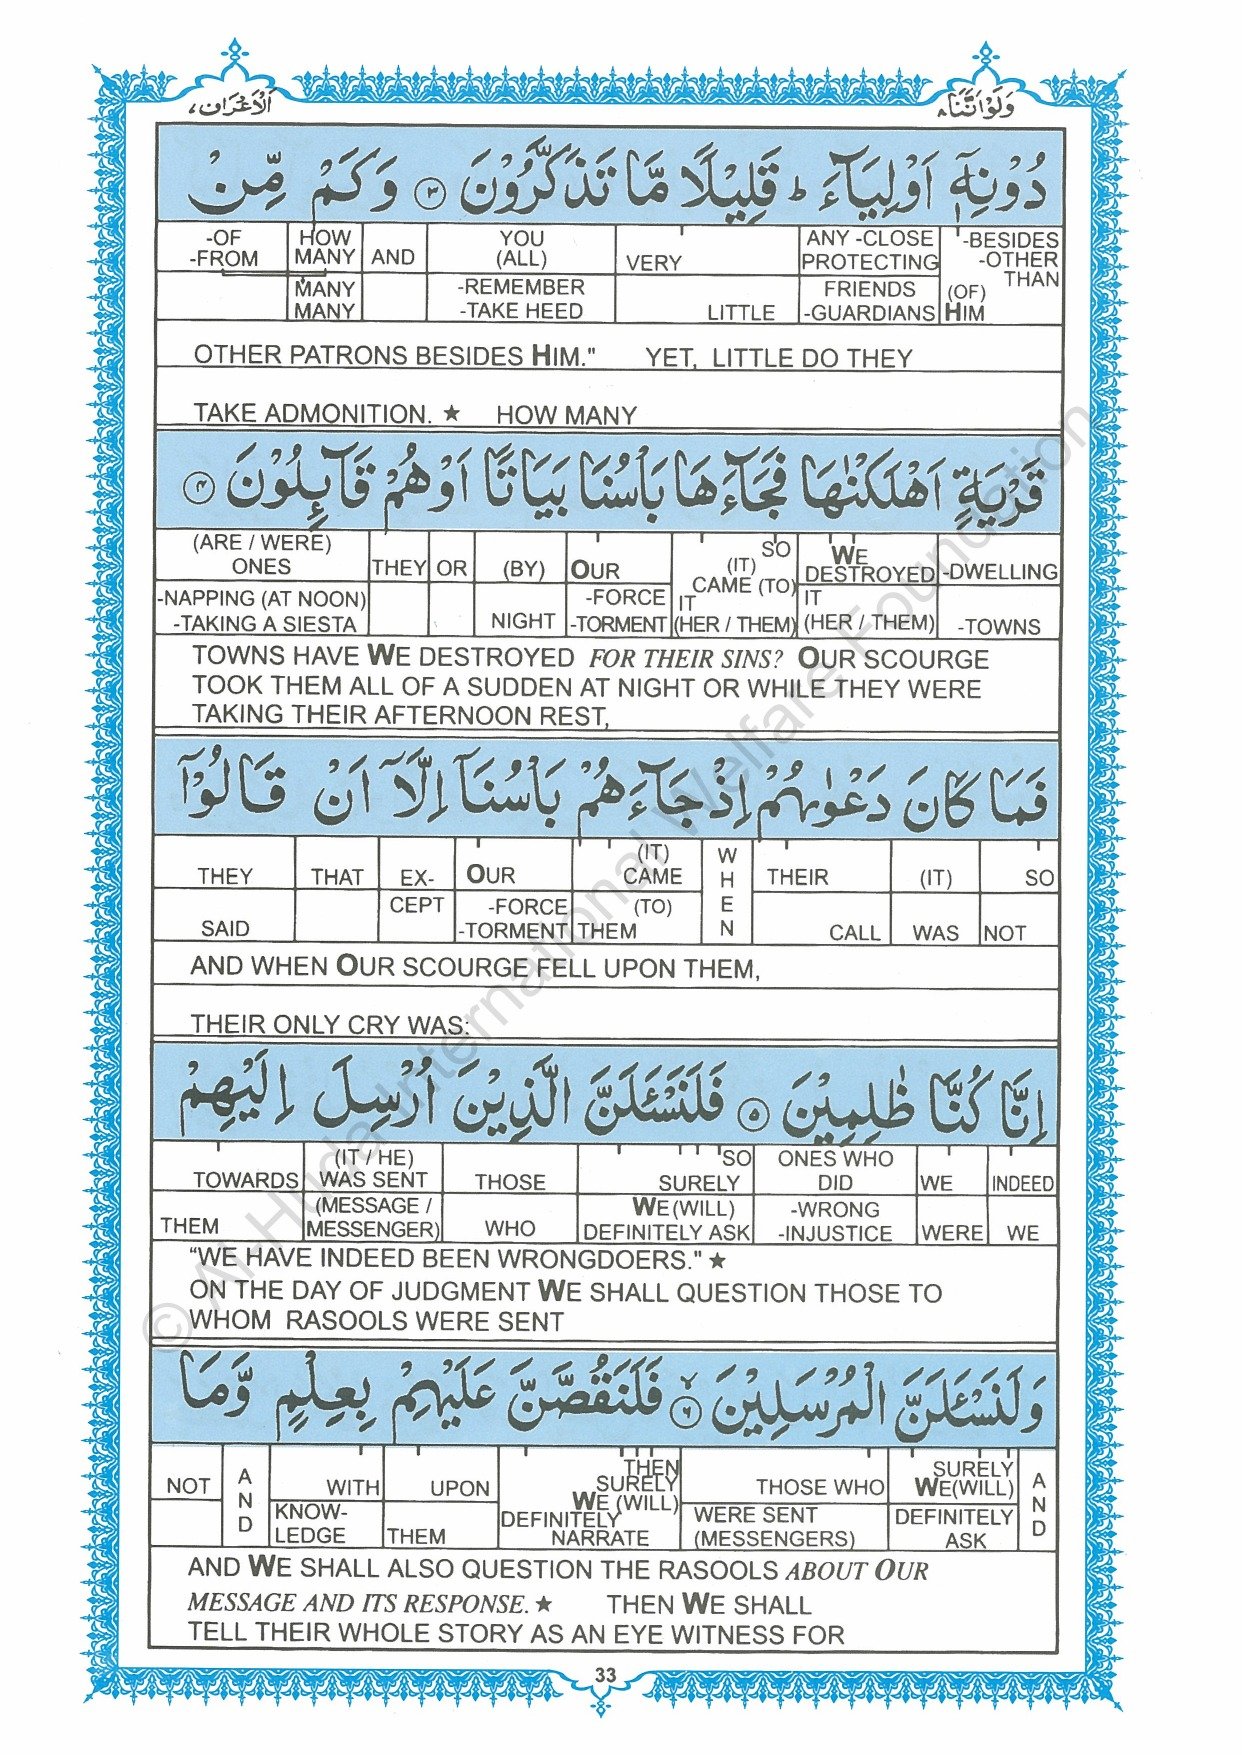 وَلَوْ اَنَّنَا ۸ اَلْاَعْرَاف ۷
دُوْنِهٖۤ اَوْلِيَآءَ ؕ قَلِيْلًا مَّا تَذَكَّرُوْنَ ۝۳ وَكَمْ مِّنْ
-OF HOW YOU ANY -CLOSE -BESIDES
-FROM MANY AND (ALL) VERY PROTECTING -OTHER THAN
MANY -REMEMBER FRIENDS (OF)
MANY -TAKE HEED LITTLE -GUARDIANS HIM
OTHER PATRONS BESIDES HIM." YET, LITTLE DO THEY
TAKE ADMONITION. ★ HOW MANY
قَرْيَةٍ اَهْلَكْنٰهَا فَجَآءَهَا بَاْسُنَا بَيَاتًا اَوْ هُمْ قَآىِٕلُوْنَ ۝۴
(ARE / WERE) SO WE
ONES THEY OR (BY) OUR (IT) CAME (TO) DESTROYED -DWELLING
-NAPPING (AT NOON) -FORCE IT IT
-TAKING A SIESTA NIGHT -TORMENT (HER / THEM) (HER / THEM) -TOWNS
TOWNS HAVE WE DESTROYED FOR THEIR SINS? OUR SCOURGE
TOOK THEM ALL OF A SUDDEN AT NIGHT OR WHILE THEY WERE
TAKING THEIR AFTERNOON REST,
فَمَا كَانَ دَعْوٰىهُمْ اِذْ جَآءَهُمْ بَاْسُنَاۤ اِلَّاۤ اَنْ قَالُوْۤا
THEY THAT EX- OUR (IT) CAME WHEN THEIR (IT) SO
CEPT -FORCE (TO)
SAID -TORMENT THEM CALL WAS NOT
AND WHEN OUR SCOURGE FELL UPON THEM,
THEIR ONLY CRY WAS:
اِنَّا كُنَّا ظٰلِمِيْنَ ۝۵ فَلَنَسْـَٔلَنَّ الَّذِيْنَ اُرْسِلَ اِلَيْهِمْ
(IT / HE) SO ONES WHO
TOWARDS WAS SENT THOSE SURELY DID WE INDEED
(MESSAGE / WE (WILL) -WRONG
THEM MESSENGER) WHO DEFINITELY ASK -INJUSTICE WERE WE
“WE HAVE INDEED BEEN WRONGDOERS." ★
ON THE DAY OF JUDGMENT WE SHALL QUESTION THOSE TO
WHOM RASOOLS WERE SENT
وَلَنَسْـَٔلَنَّ الْمُرْسَلِيْنَ ۝۶ فَلَنَقُصَّنَّ عَلَيْهِمْ بِعِلْمٍ وَّمَا
THEN SURELY
NOT AND WITH UPON SURELY WE (WILL) THOSE WHO WE(WILL) AND
KNOW- DEFINITELY WERE SENT DEFINITELY
LEDGE THEM NARRATE (MESSENGERS) ASK
AND WE SHALL ALSO QUESTION THE RASOOLS ABOUT OUR
MESSAGE AND ITS RESPONSE. ★ THEN WE SHALL
TELL THEIR WHOLE STORY AS AN EYE WITNESS FOR
33
© Al-Huda International Welfare Foundation